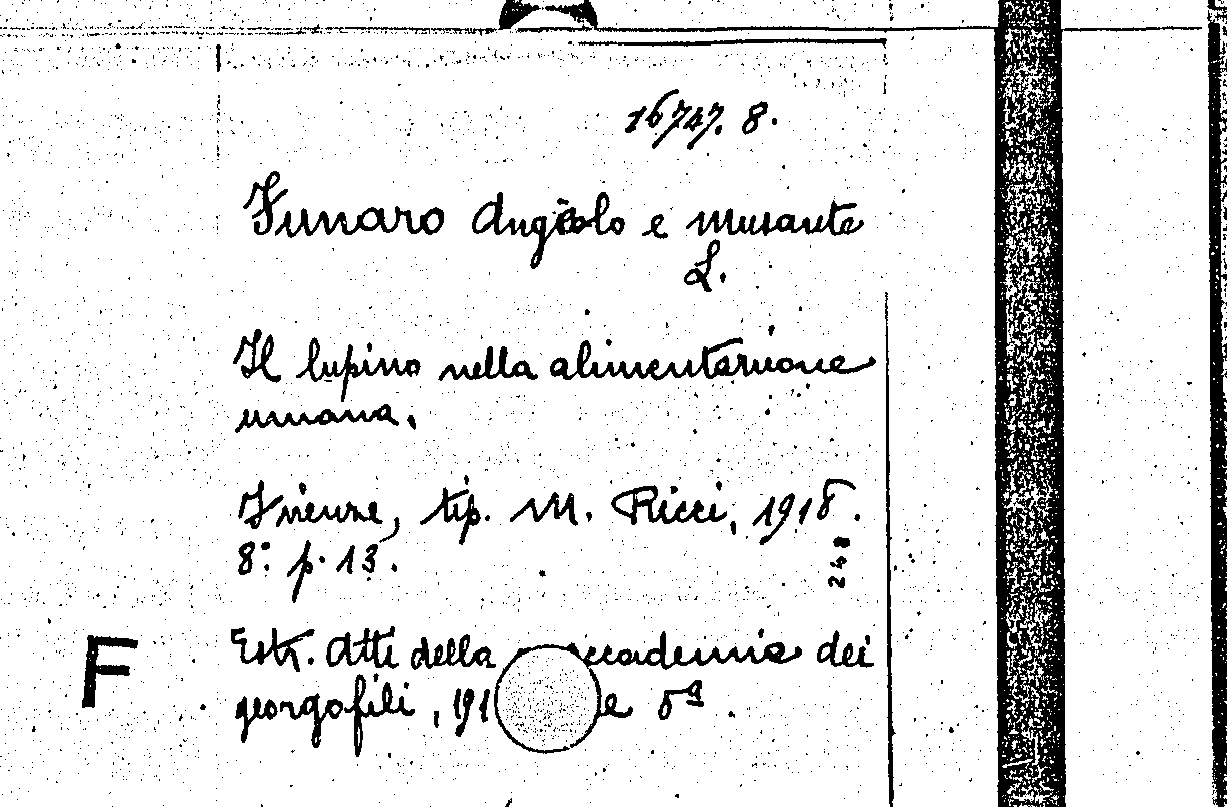 16747. 8.
Funaro Angiolo e Musante
L.
Il lupino nella alimentazione
umana.
Firenze, tip. M. Ricci, 1918.
8.° p. 13.
248
F
Estr. Atti della accademia dei
georgofili, 191 e 5ª.